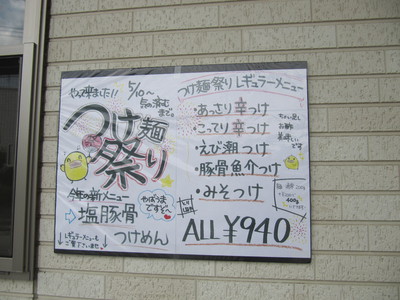 やって来ました!!
5/10～
気の済む
まで。
つけ麺
祭り
今年の新メニュー
⇨塩豚骨
つけめん
やばうま
ですと～
レギュラーメニューも
ご覧下さいませ。
つけ麺祭りレギュラーメニュー
・あっさり辛つけ
・こってり辛つけ
・えび潮つけ
・豚骨魚介つけ
・みそつけ
ALL ¥940
お酢
美味しい
です
400g